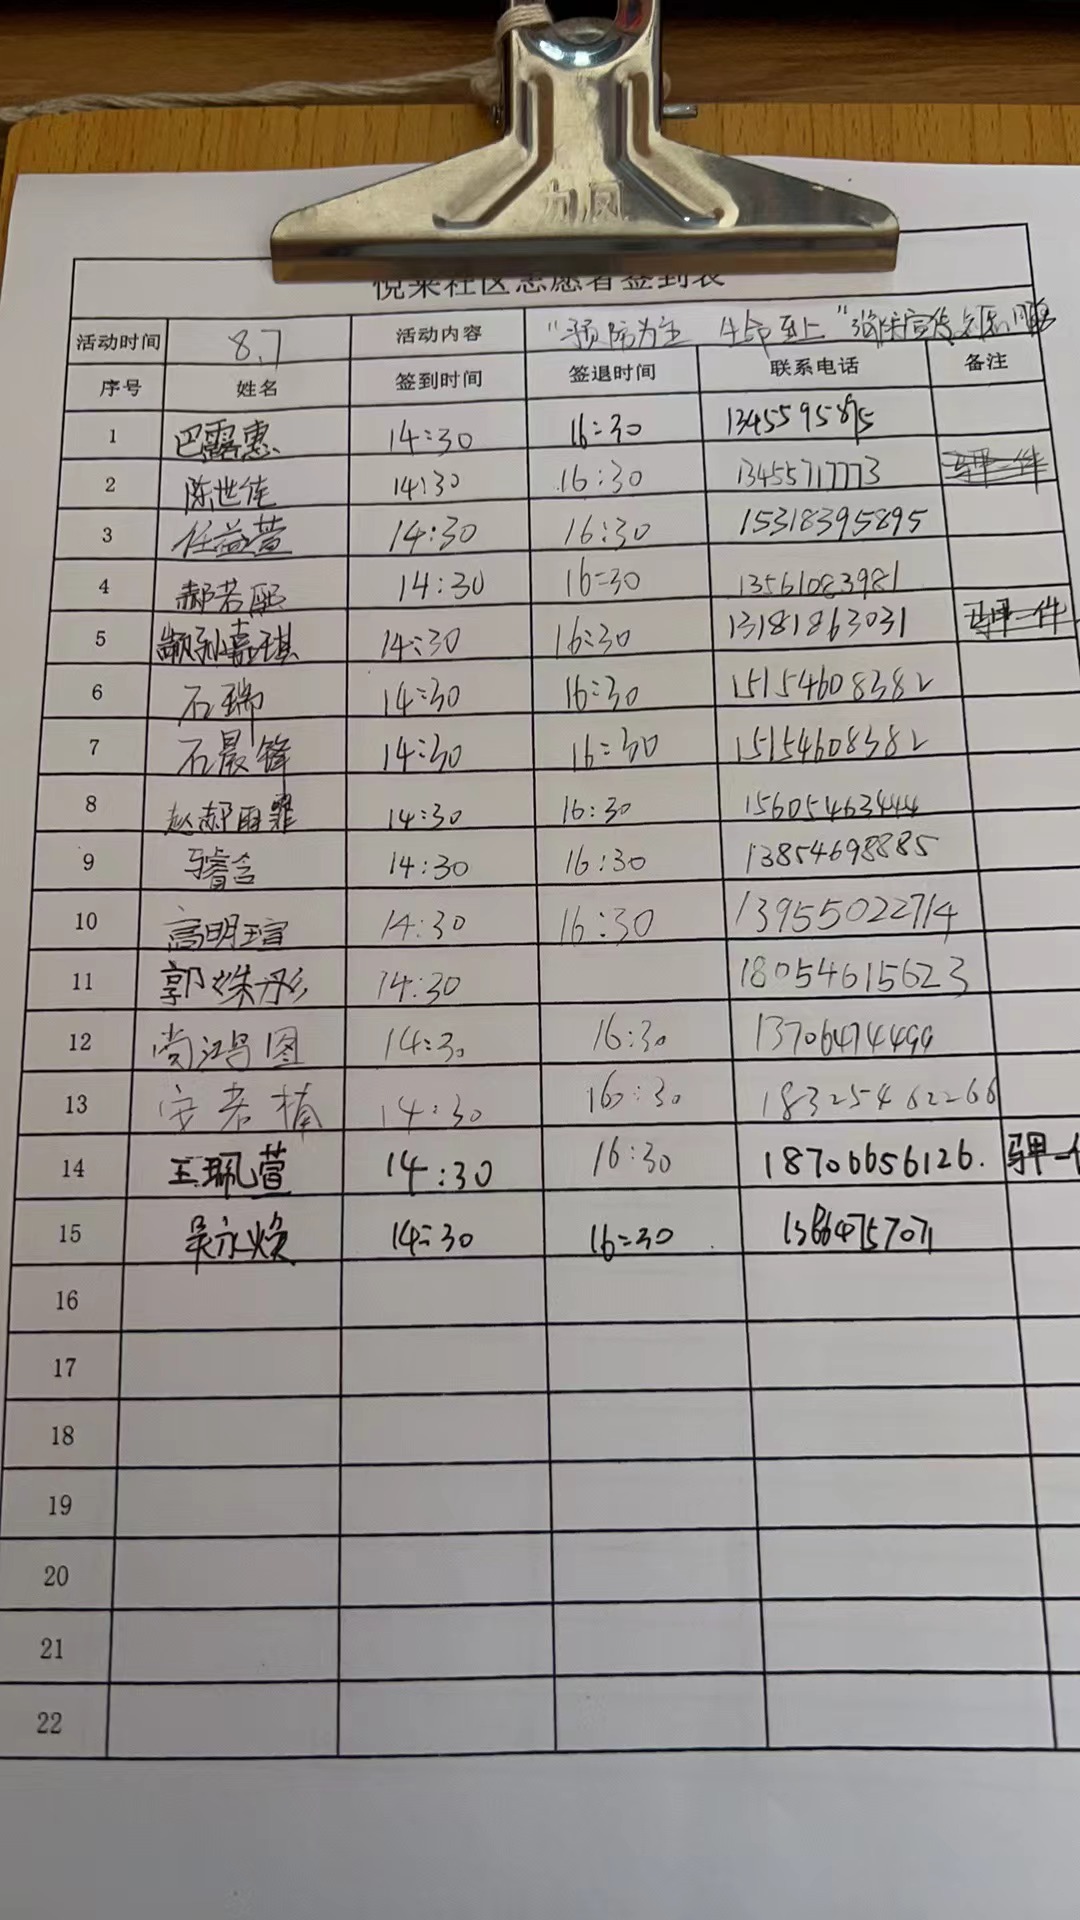 力风
悦来社区志愿者签到表
活动时间 8.7 活动内容 "预防为主 生命至上"消防宣传志愿服务
序号 姓名 签到时间 签退时间 联系电话 备注
1 巴露惠 14:30 16:30 1345595895
2 陈世佳 14:30 16:30 13455717773
3 任益萱 14:30 16:30 15318395895
4 郝若熙 14:30 16:30 13561083981
5 颛孙嘉琪 14:30 16:30 13181863031 马甲一件
6 石瑞 14:30 16:30 15154608382
7 石晨锋 14:30 16:30 15154608382
8 赵郝雨霏 14:30 16:30 15605463444
9 马睿含 14:30 16:30 13854698885
10 高明瑄 14:30 16:30 13955022714
11 郭姝彤 14:30 18054615623
12 尚鸿图 14:30 16:30 13706474499
13 安若楠 14:30 16:30 18325462266
14 王珮萱 14:30 16:30 18706656126. 马甲一
15 吴永焕 14:30 16:30 13864757071
16
17
18
19
20
21
22